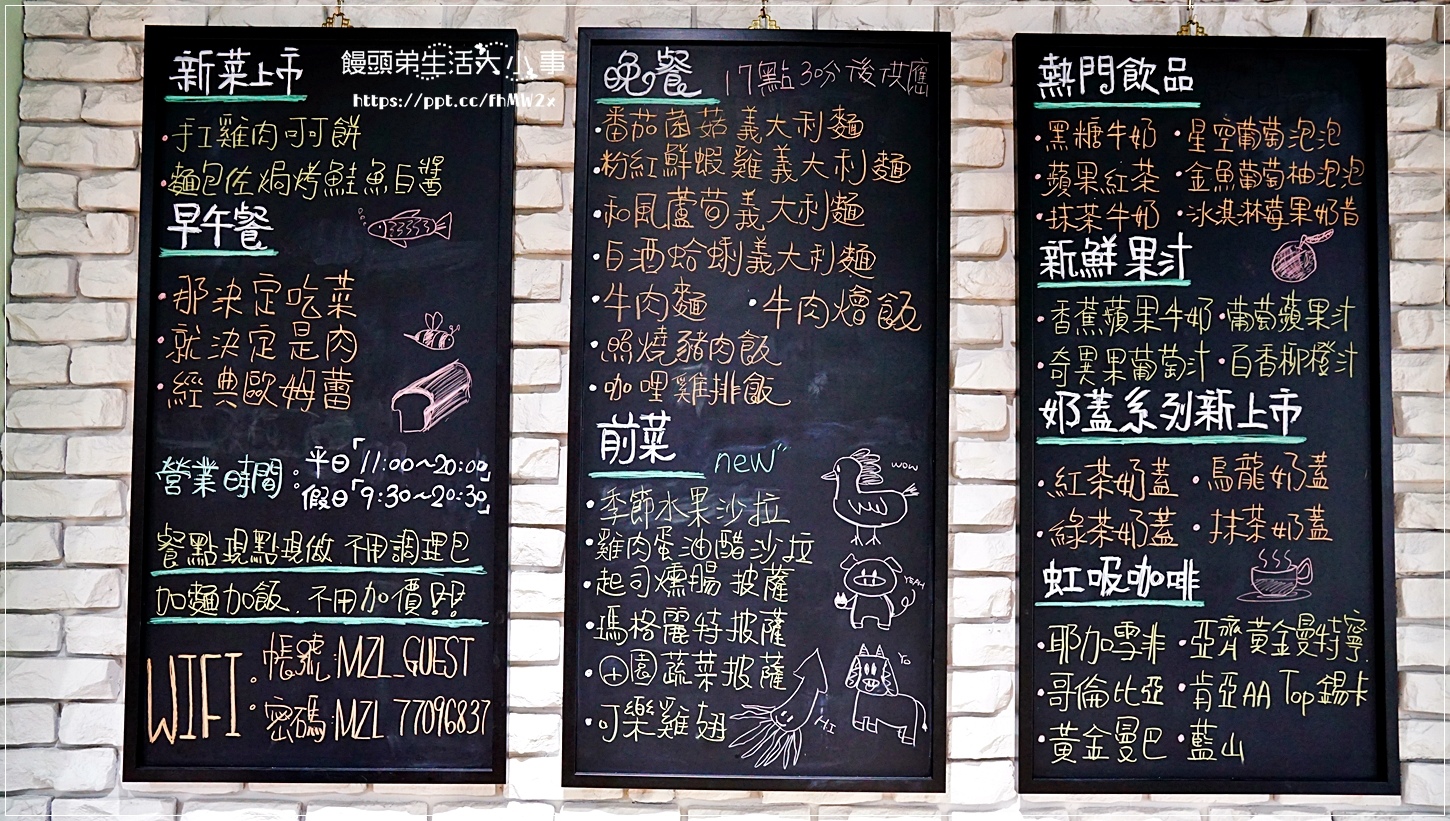 饅頭弟生活大小事
https://ppt.cc/fhMW2x
新菜上市
·手工雞肉可可餅
·麵包佐焗烤鮭魚白醬
早午餐
·那決定吃菜
·就決定是肉
·經典歐姆蕾
營業時間：平日「11:00~20:00」
假日「9:30~20:30」
餐點現點現做 不用調理包
加麵加飯．不用加價!!
WIFI：
帳號:MZL_GUEST
密碼:MZL 77096837
晚餐 17點30分後供應
·番茄菌菇義大利麵
·粉紅鮮蝦雞義大利麵
·和風蘆筍義大利麵
·白酒蛤蜊義大利麵
·牛肉麵 ·牛肉燴飯
·照燒豬肉飯
·咖哩雞排飯
前菜 new
·季節水果沙拉
·雞肉蛋油醋沙拉
·起司燻腸披薩
·瑪格麗特披薩
·田園蔬菜披薩
·可樂雞翅
wow
YEAH
Yo
HI
熱門飲品
·黑糖牛奶 ·星空葡萄泡泡
·蘋果紅茶 ·金魚葡萄柚泡泡
·抹茶牛奶 ·冰淇淋莓果奶昔
新鮮果汁
·香蕉蘋果牛奶 ·葡萄蘋果汁
·奇異果葡萄汁 ·百香柳橙汁
奶蓋系列新上市
·紅茶奶蓋 ·烏龍奶蓋
·綠茶奶蓋 ·抹茶奶蓋
虹吸咖啡
·耶加雪非 ·亞齊黃金曼特寧
·哥倫比亞 ·肯亞AA Top錫卡
·黃金曼巴 ·藍山